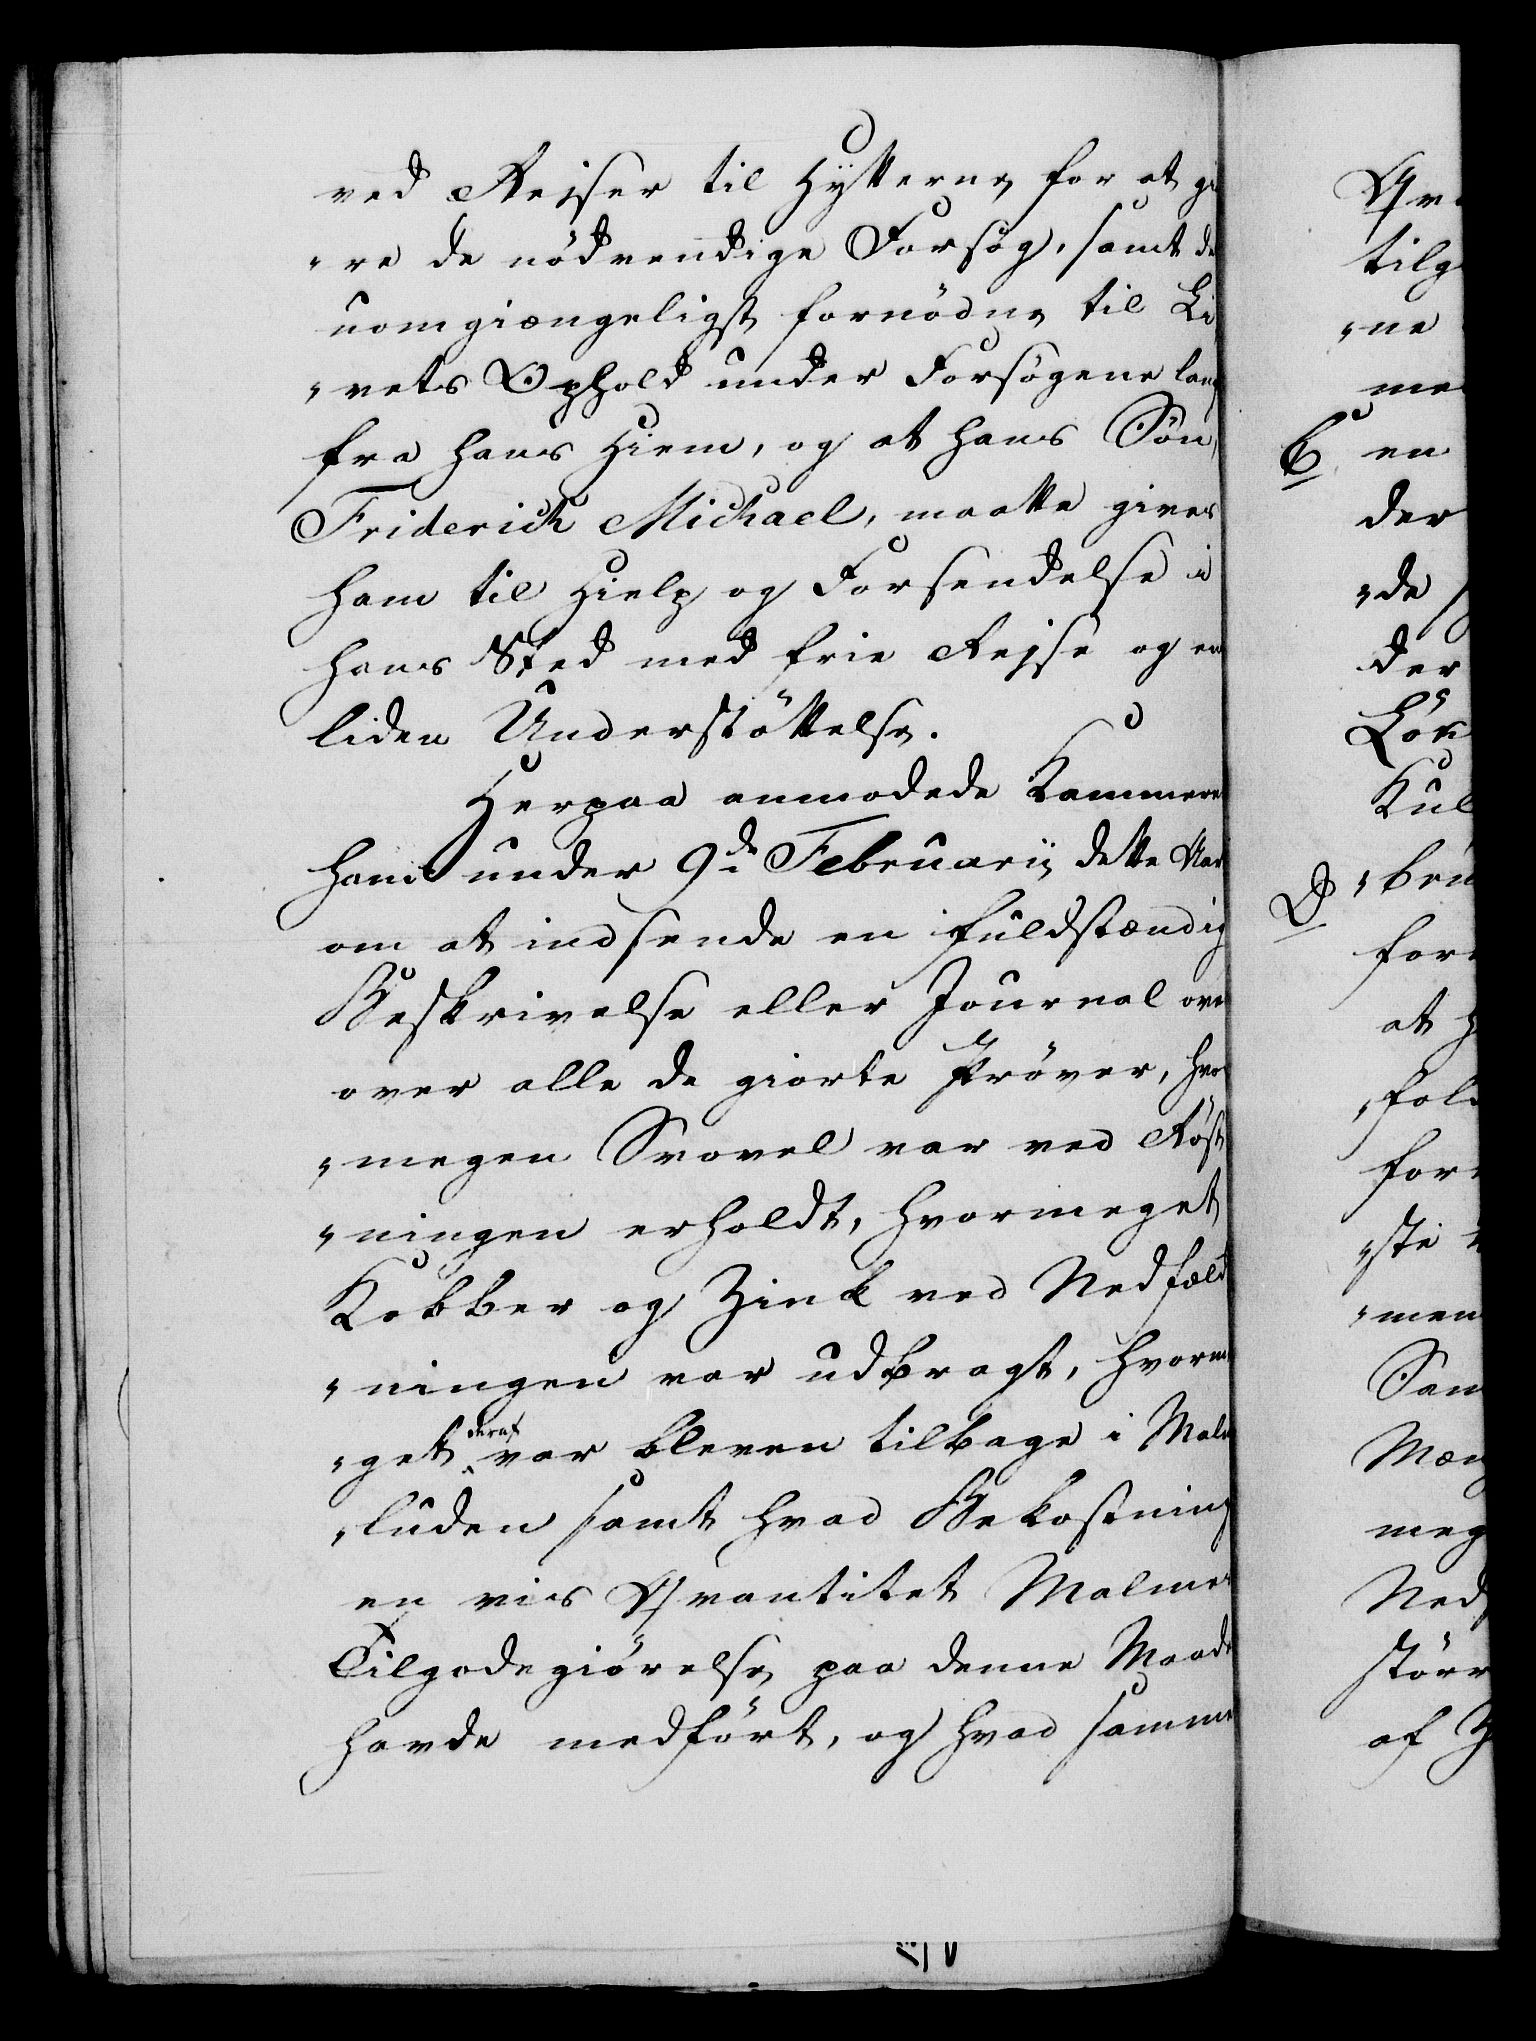 ved Rejser til Hytterne for at gi
"re de nödvendige Forsög, samt de
uomgiængeligst fornödne til Li
"vets Ophold under Forsögene lang
fra hans Hiem, og at hans Sön,
Friderich Michael, maatte gives
ham til Hielp og Forsendelse i
hans Sted med frie Rejse og en
liden Understöttelse.
Herpaa anmodede Kammere
ham under 9de Februarii dette Aar
om at indsende en fuldstændig
Beskrivelse eller Journal ove
over alle de giorte Pröver, hvor
"megen Svovel var ved Röst
"ningen erholdt, hvormeget
Kobber og Zink ved Nedfæld
"ningen var udbragt, hvorme
"get deraf var bleven tilbage i Malm
"luden samt hvad Bekostning
en vis Qvantitet Malmes
Tilgodegiörelse paa denne Maade
havde medfört, og hvad samme
Qva
tilg
"ne
me
C en
der
"de
der
Lön
Kul
D "bru
for
at H
"fol
for
"ste
"men
Sam
Mæng
meg
Ned
störr
af Z